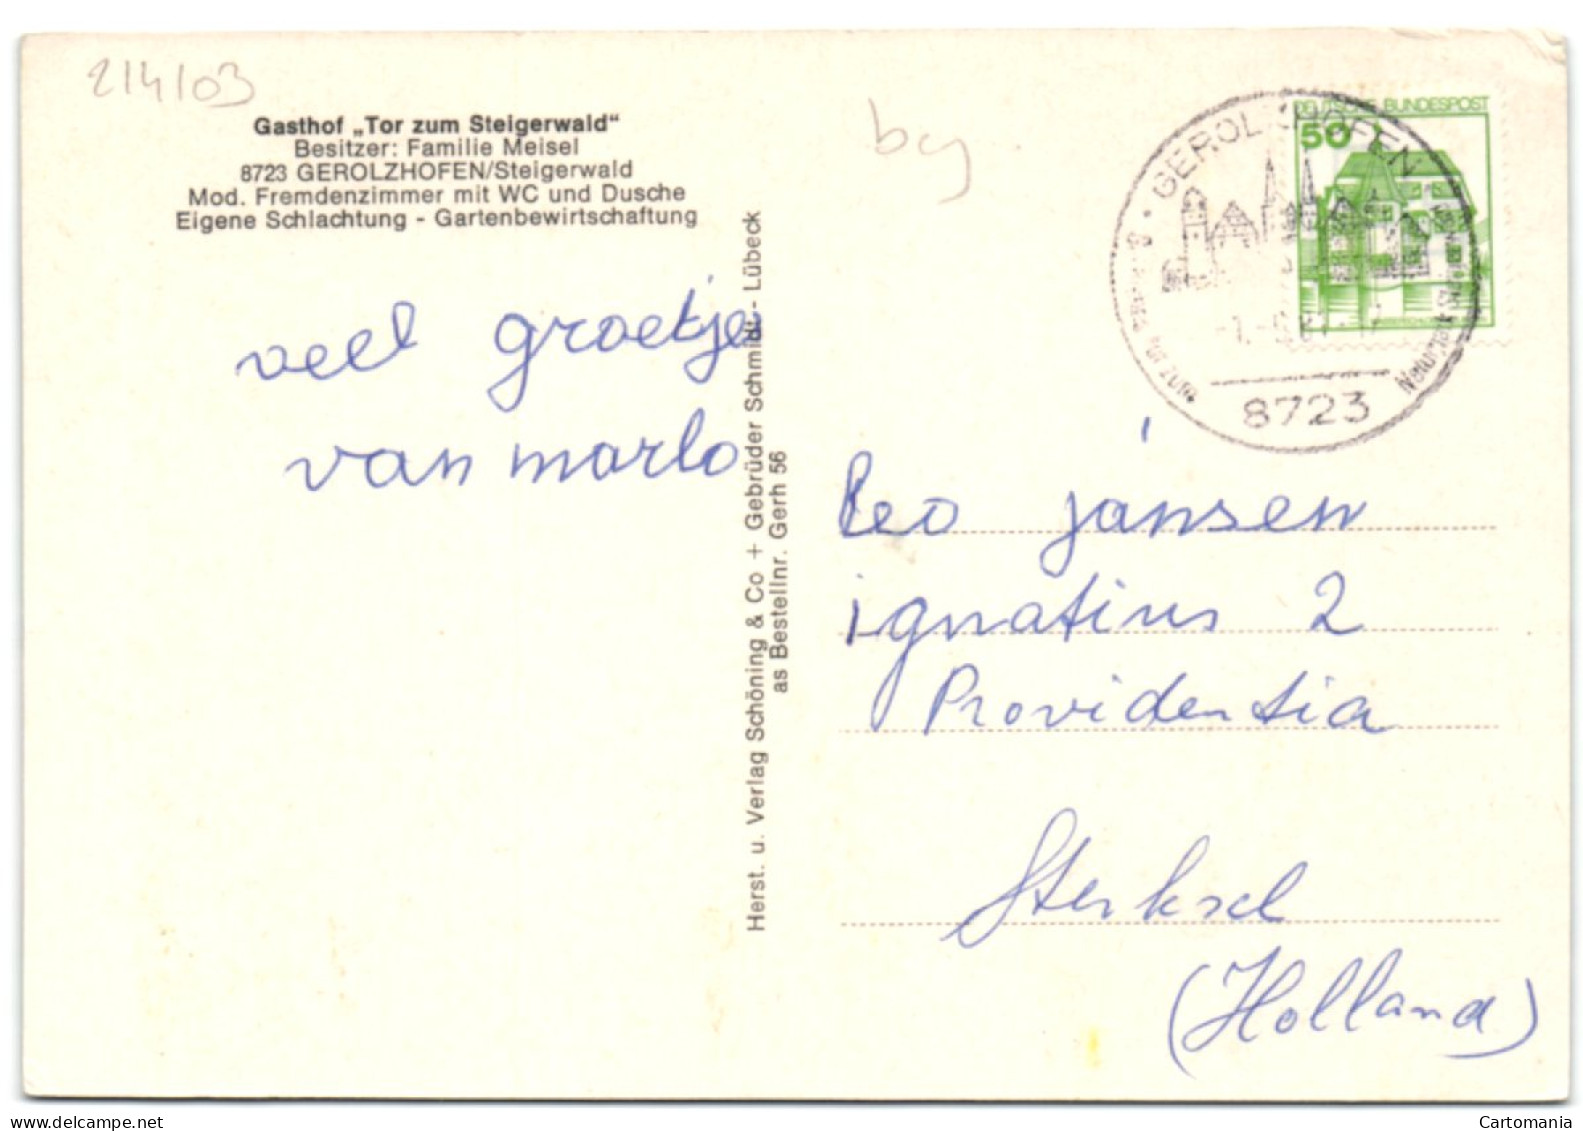 214103
Gasthof „Tor zum Steigerwald“
Besitzer: Familie Meisel
8723 GEROLZHOFEN/Steigerwald
Mod. Fremdenzimmer mit WC und Dusche
Eigene Schlachtung - Gartenbewirtschaftung
veel groetje
van marlo
Herst. u. Verlag Schöning & Co + Gebrüder Schmidt - Lübeck
as Bestellnr. Gerh 56
DEUTSCHE BUNDESPOST
50
8723
Leo jansen
ignatius 2
Providentia
Sterksel
(Holland)
Cartomania